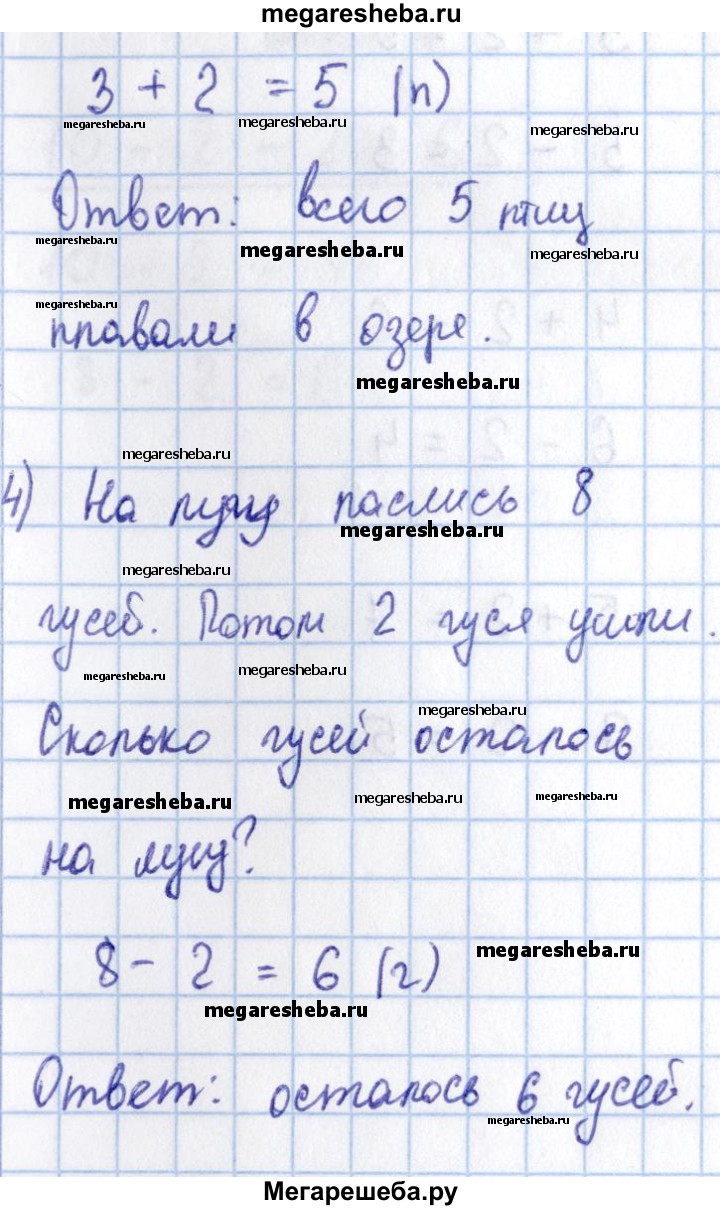 megaresheba.ru
3 + 2 = 5 (п)
megaresheba.ru megaresheba.ru megaresheba.ru
Ответ: всего 5 птиц
megaresheba.ru megaresheba.ru megaresheba.ru
megaresheba.ru
плавали в озере.
megaresheba.ru
megaresheba.ru
4) На лугу паслись 8
megaresheba.ru
megaresheba.ru
гусей. Потом 2 гуся ушли.
megaresheba.ru megaresheba.ru
megaresheba.ru
Сколько гусей осталось
megaresheba.ru megaresheba.ru megaresheba.ru
на лугу?
8 - 2 = 6 (г)
megaresheba.ru
megaresheba.ru
Ответ: осталось 6 гусей.
megaresheba.ru
Мегарешеба.ру